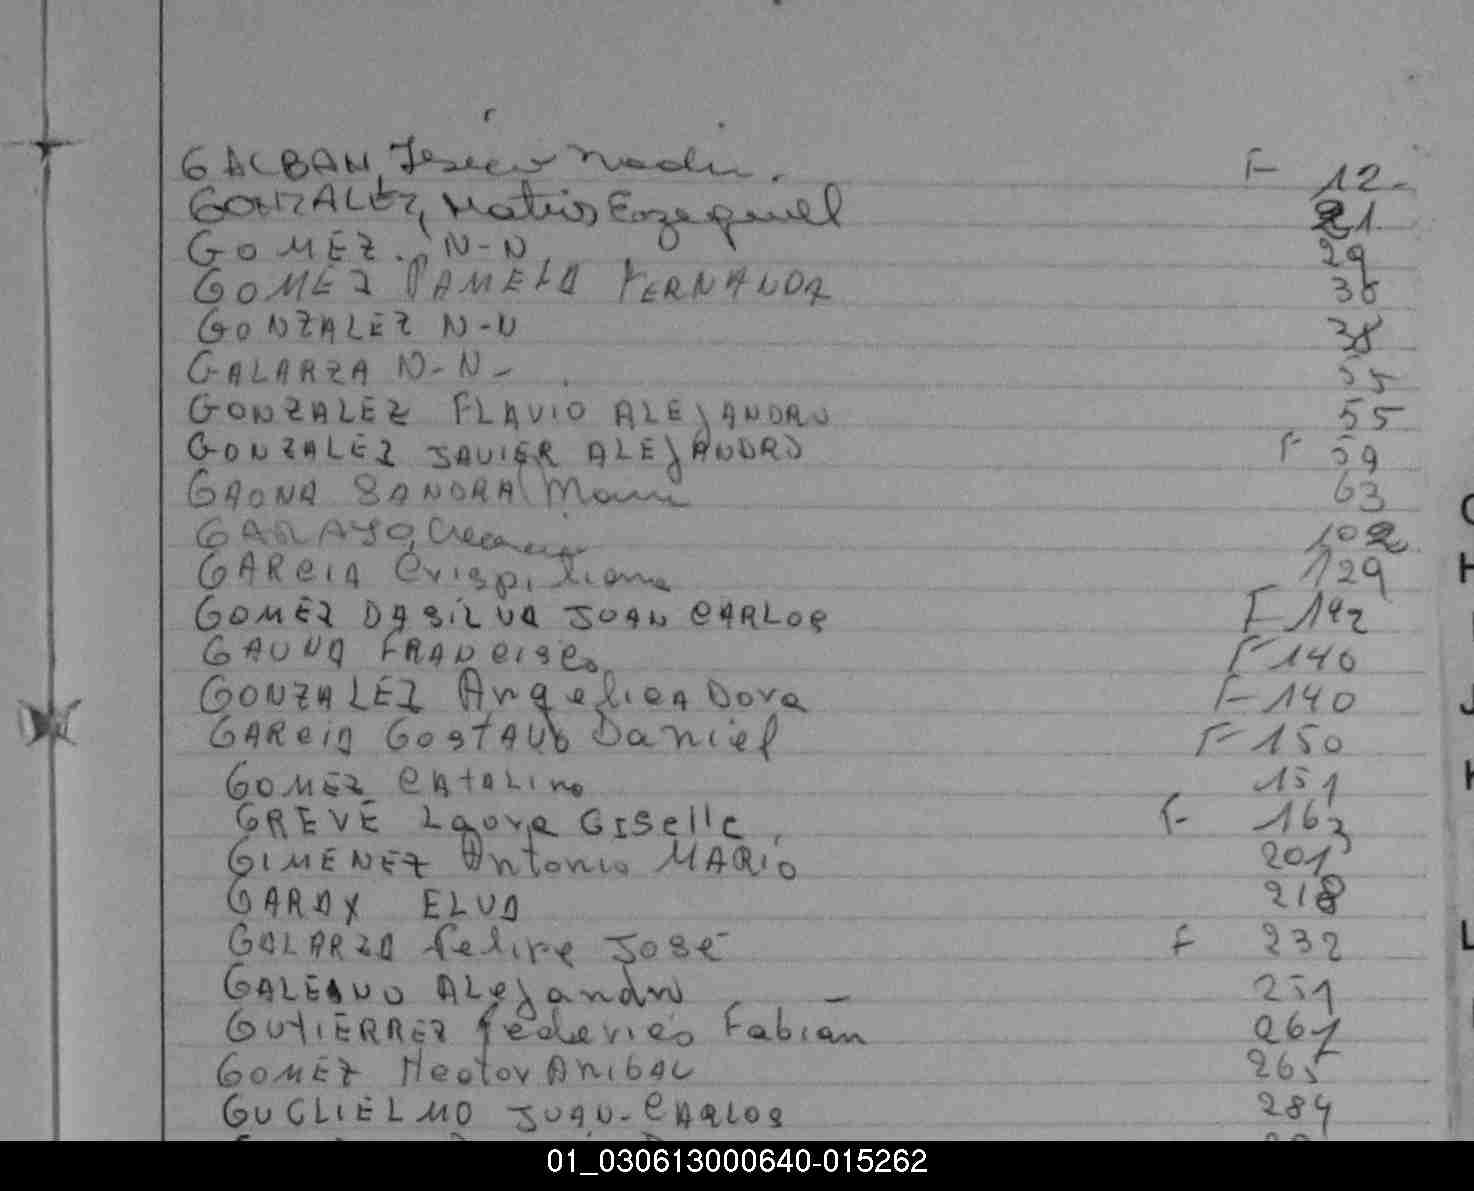 GALBAN, Jesica Nadin. F 12.
GONZALEZ, Matias Ezequiel 21
GOMEZ. N-N 29
GOMEZ PAMELA FERNANDA 36
GONZALEZ N-N 38
GALARZA N-N- 55
GONZALEZ FLAVIO ALEJANDRO 55
GONZALEZ JAVIER ALEJANDRO F 59
GAONA SANDRA 63
GARAYO, 102
GARCIA Crispiliana 129
GOMEZ DASILVA JUAN CARLOS F 142
GAUNA FRANCISCO F 140
GONZALEZ Angelica Dora F-140
GARCIA GOSTAVO Daniel F-150
GOMEZ CATALINO 151
GREVE Laora GISELLE F- 163
GIMENEZ Antonio MARIO 201
GARAY ELVA 218
GALARZA Felipe JOSÉ F 232
GALEANO ALEJANDRO 251
GUTIERREZ Federico Fabian 261
GOMEZ Hector ANIBAL 265
GUGLIELMO JUAN-CARLOS 284
H
J
L
01_030613000640-015262